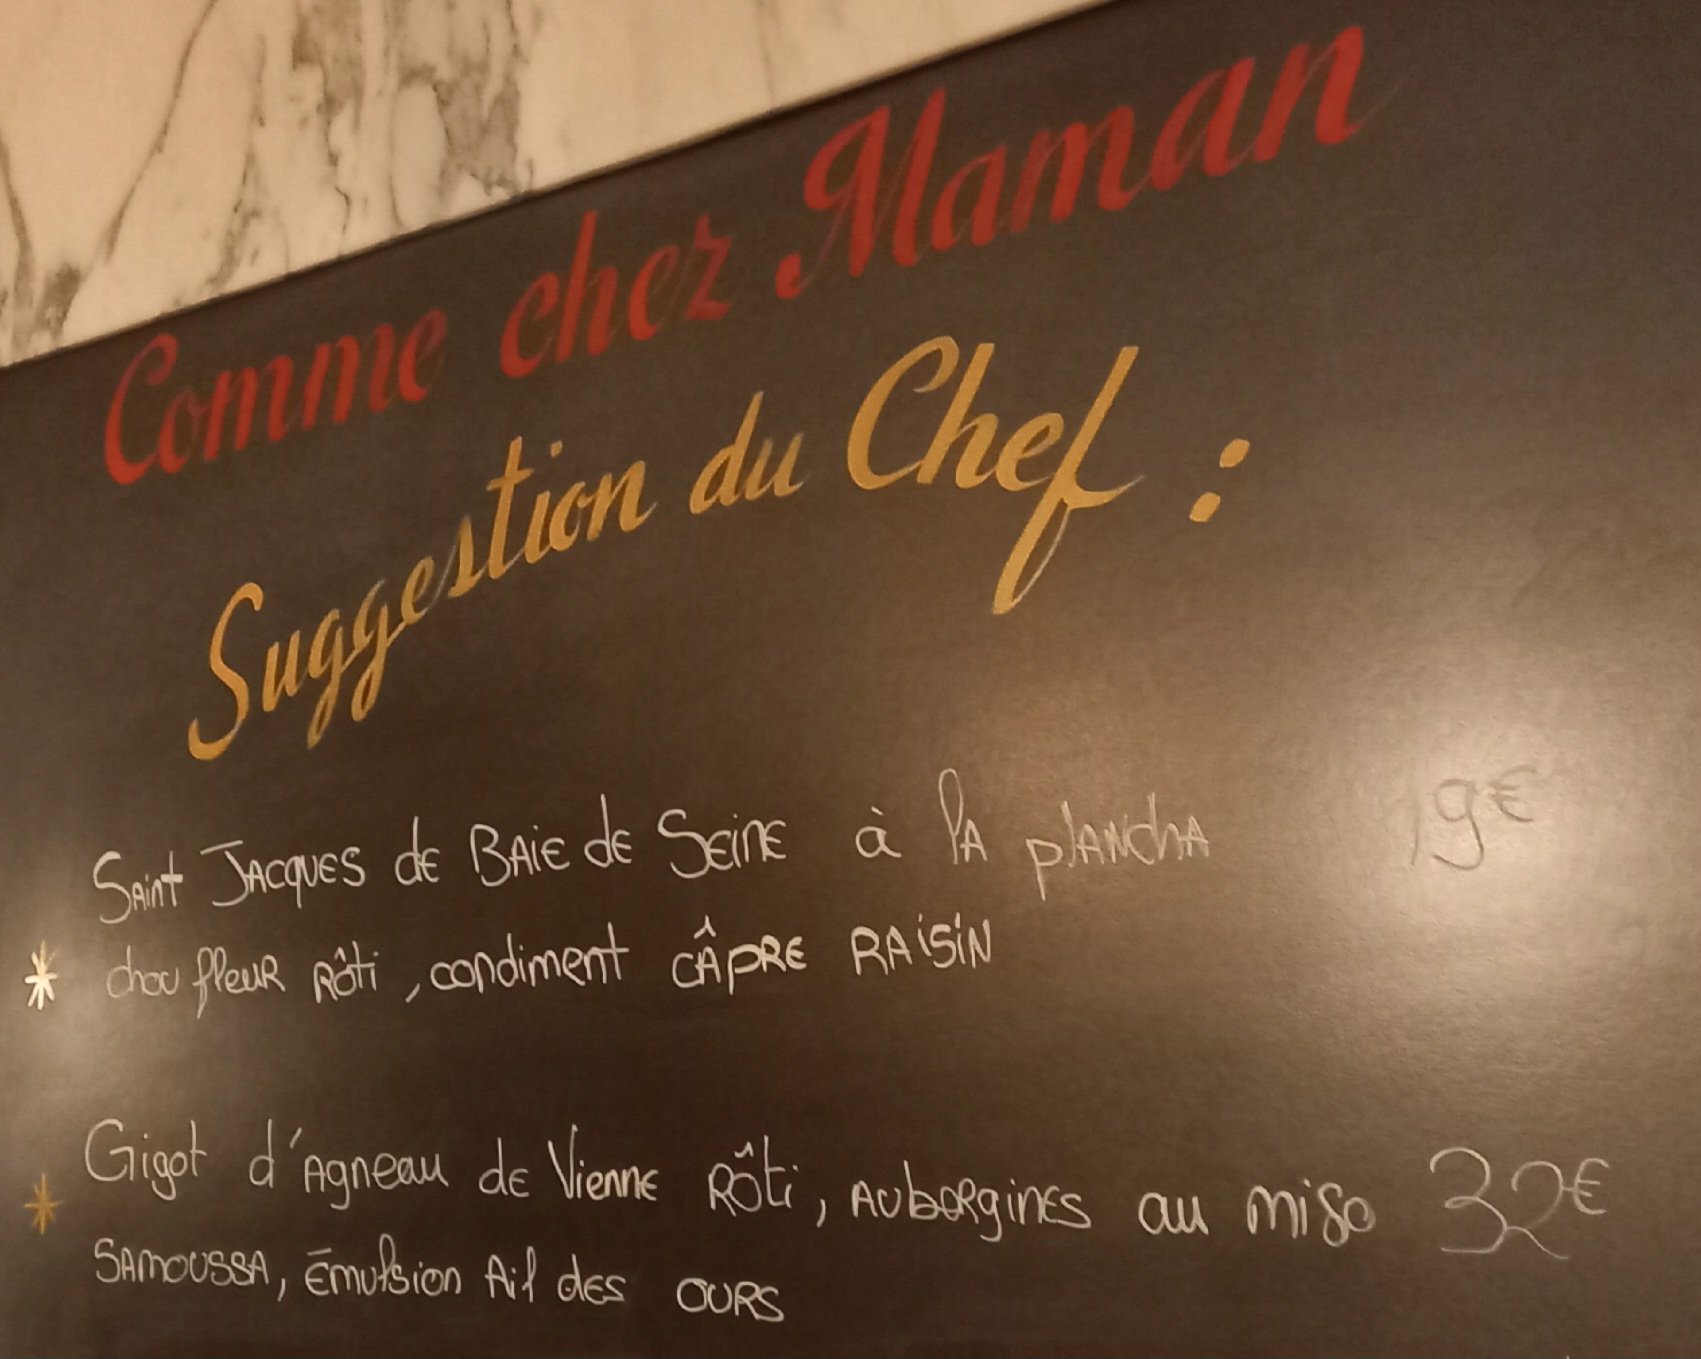 Comme chez Maman
Suggestion du Chef :
Saint Jacques de Baie de Seine à la plancha 19€
* chou fleur Rôti, condiment CÂPRE RAISIN
* Gigot d'Agneau de Vienne Rôti, Aubergines au miso 32€
SAMOUSSA, Émulsion Ail des OURS